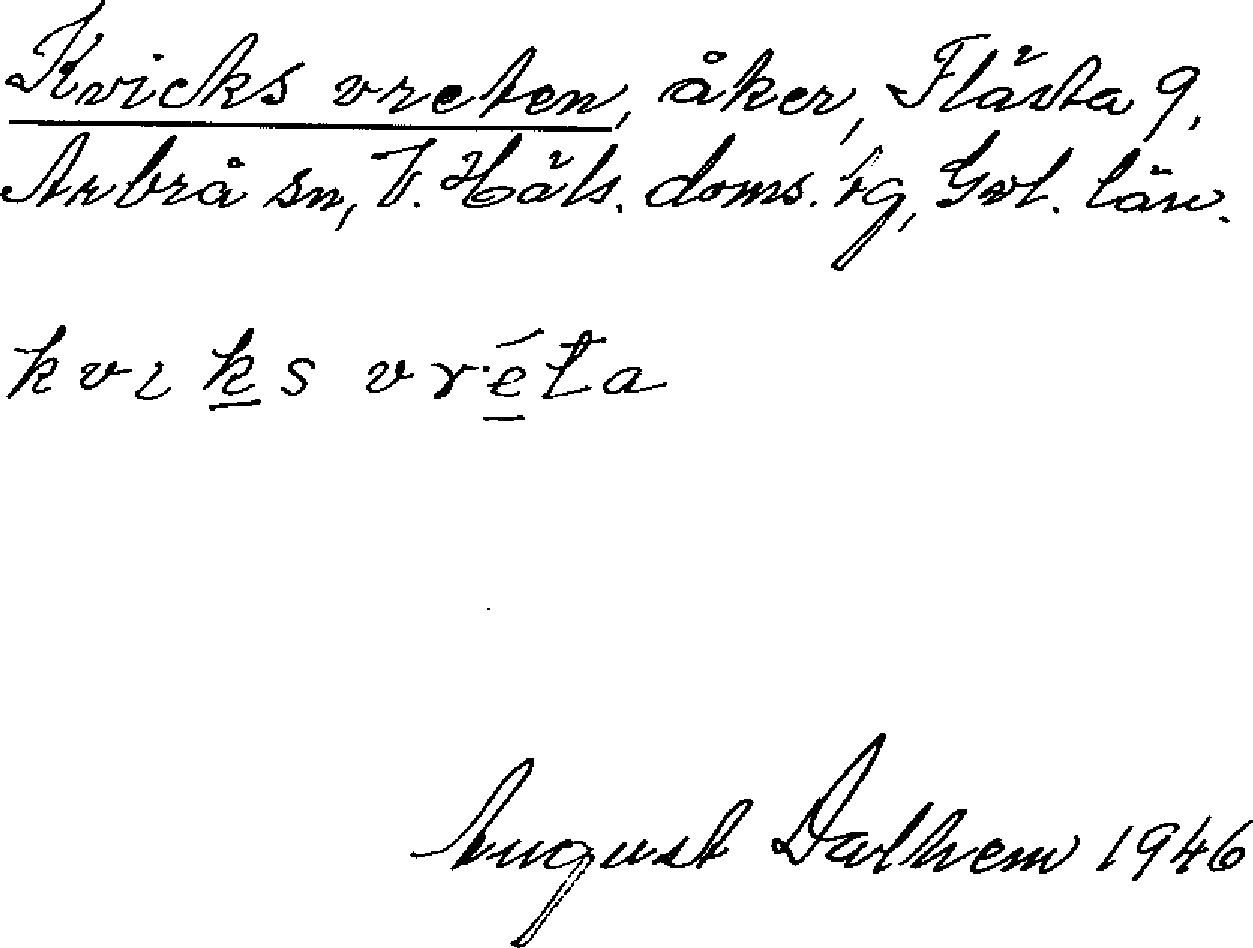 Kvicks vreten, åker, Flästa 9,
Arbrå sn, V. Häls. doms. tg, Gvl. län.
kvıks vréta
August Dalhem 1946